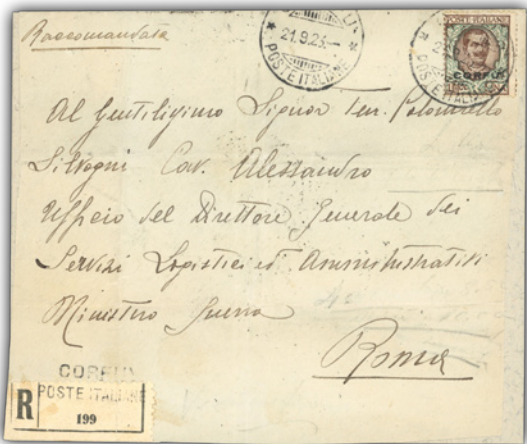 Raccomandata
CORFU
21.9.23
POSTE ITALIANE
POSTE ITALIANE
CORFU
POSTE ITALIANE
Al Gentilissimo Signor Ten. Colonnello
Silvagni Cav. Alessandro
Ufficio del Direttore Generale dei
Servizi Logistici ed Amministrativi
Ministero Guerra
Roma
CORFU
POSTE ITALIANE
R
199